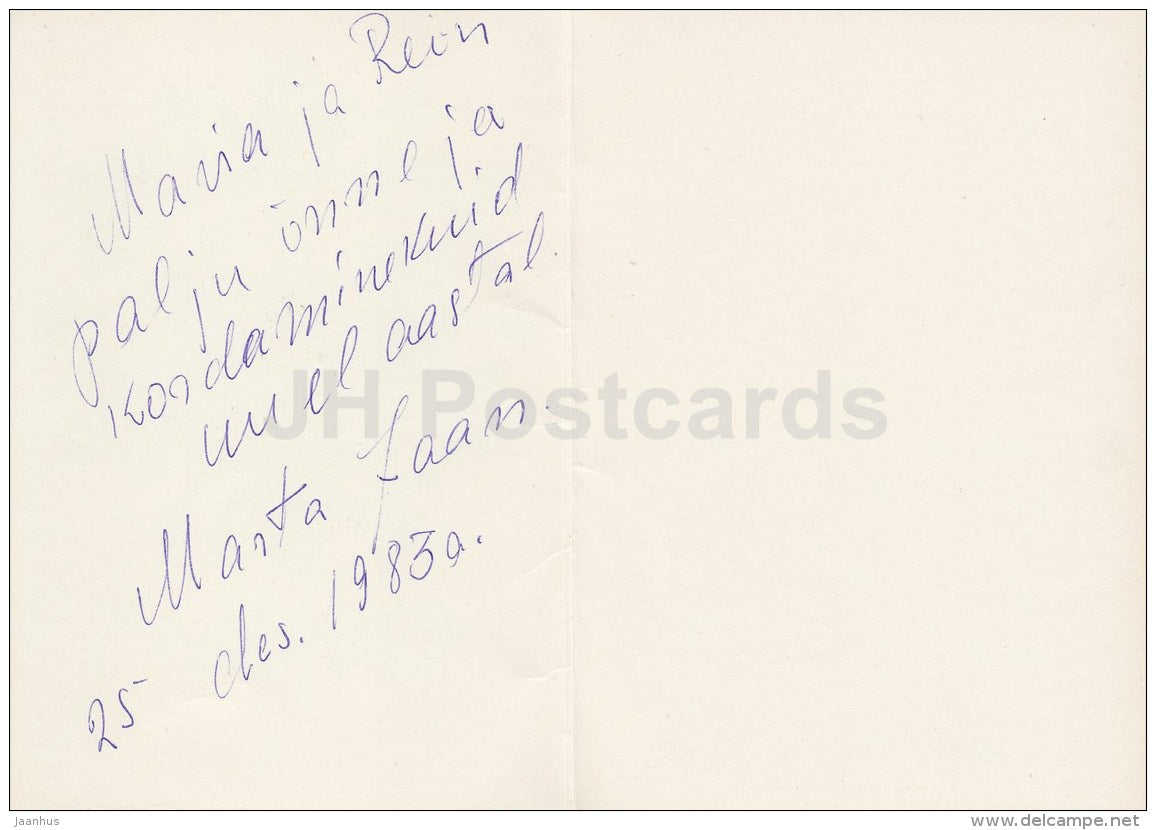 Maria ja Rein
palju õnne ja
kordaminekuid
uuel aastal.
Marta Jaan.
25 des. 1983a.
JH Postcards
Jaanhus
www.delcampe.net